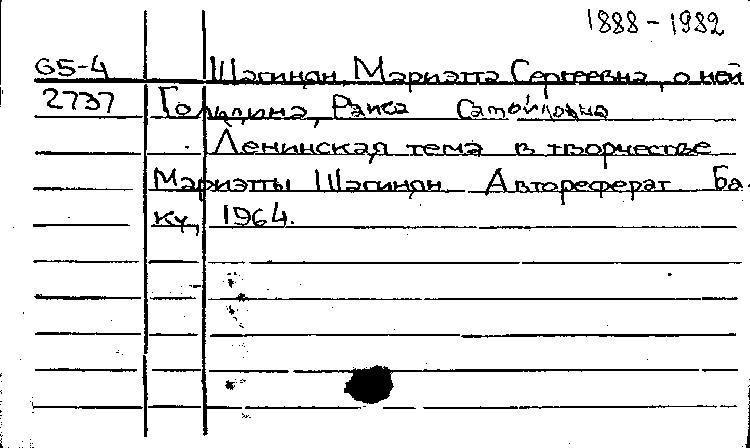 1888-1982
65-4 Шагинян, Мариэтта Сергеевна, о ней
2737 Гольдина, Раиса Самойловна
Ленинская тема в творчестве
Мариэтты Шагинян. Автореферат. Ба-
ку, 1964.